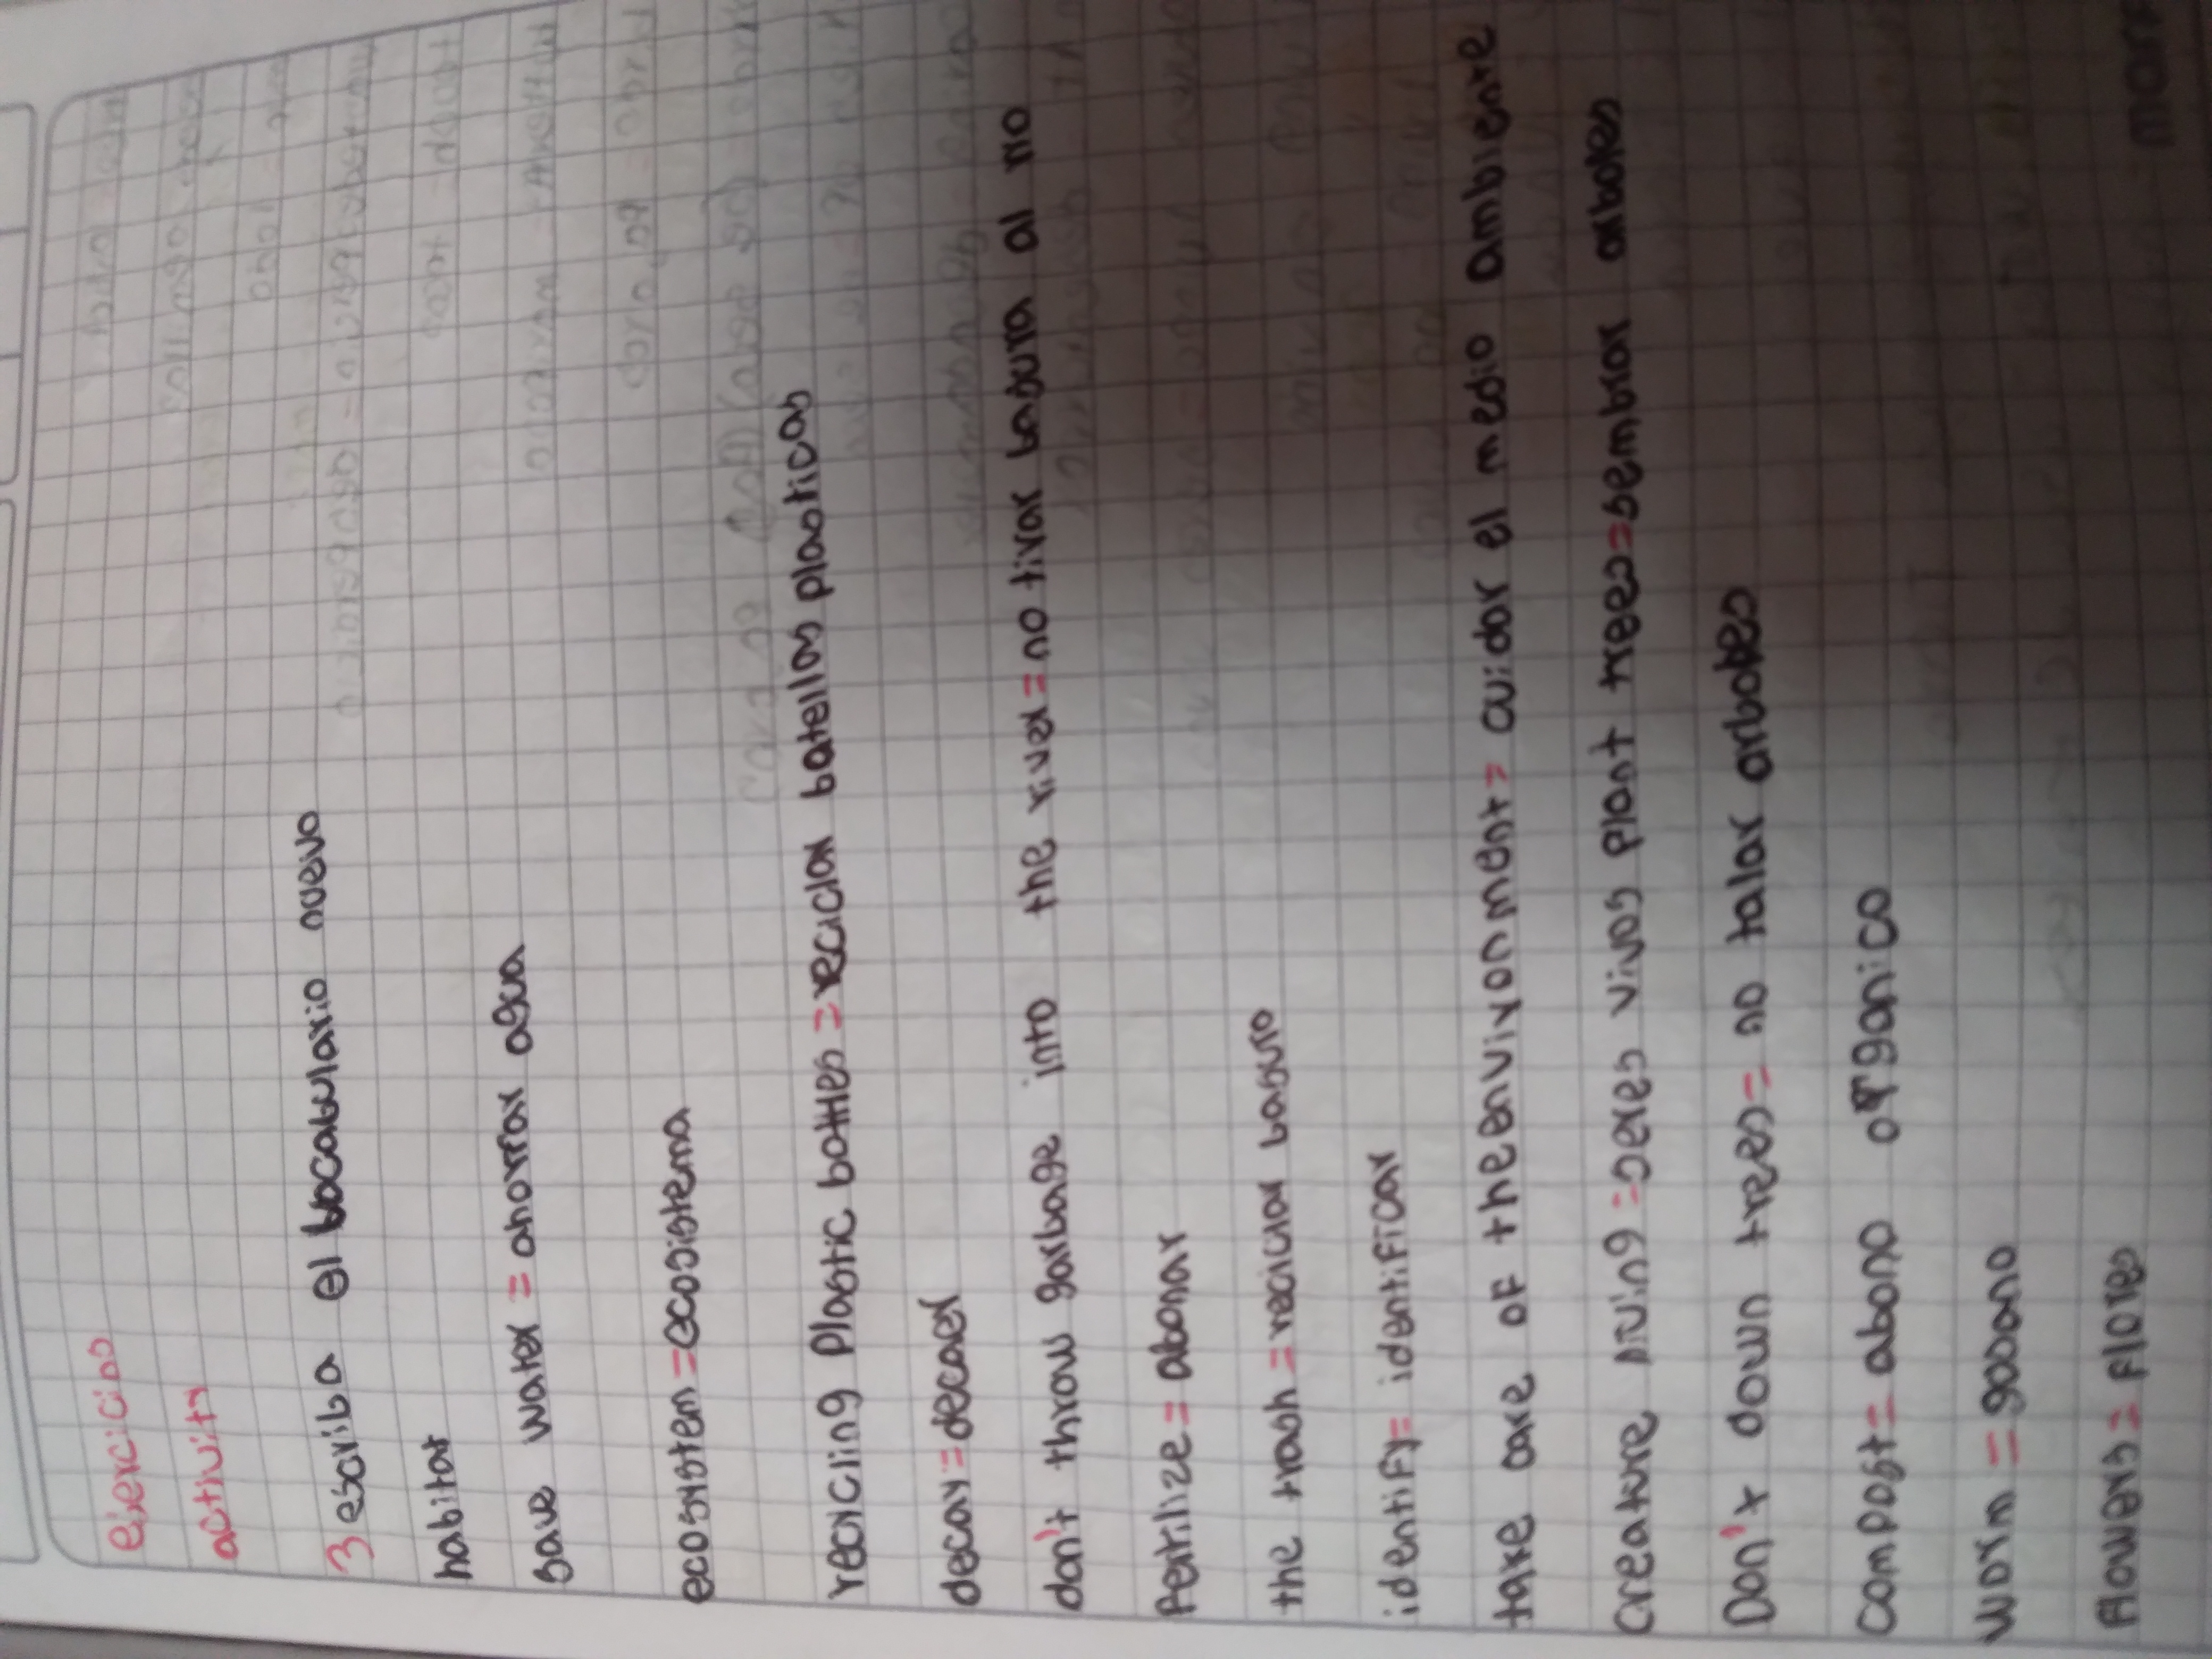 ejercicios
activity
3 escriba el bocabulario nuevo
habitat
save water = ahorrar agua
ecosystem = ecosistema
recycling plastic bottles = reciclar botellas plasticas
decay = decaer
don't throw garbage into the river = no tirar basura al rio
Fertilize = abonar
the trash = reciclar basura
identify = identificar
take care of the enviyonment = cuidar el medio ambiente
creature living = seres vivos plant trees = sembrar arboles
Don't down trees = no talar arboles
compost = abono organico
worm = gusano
flowers = flores